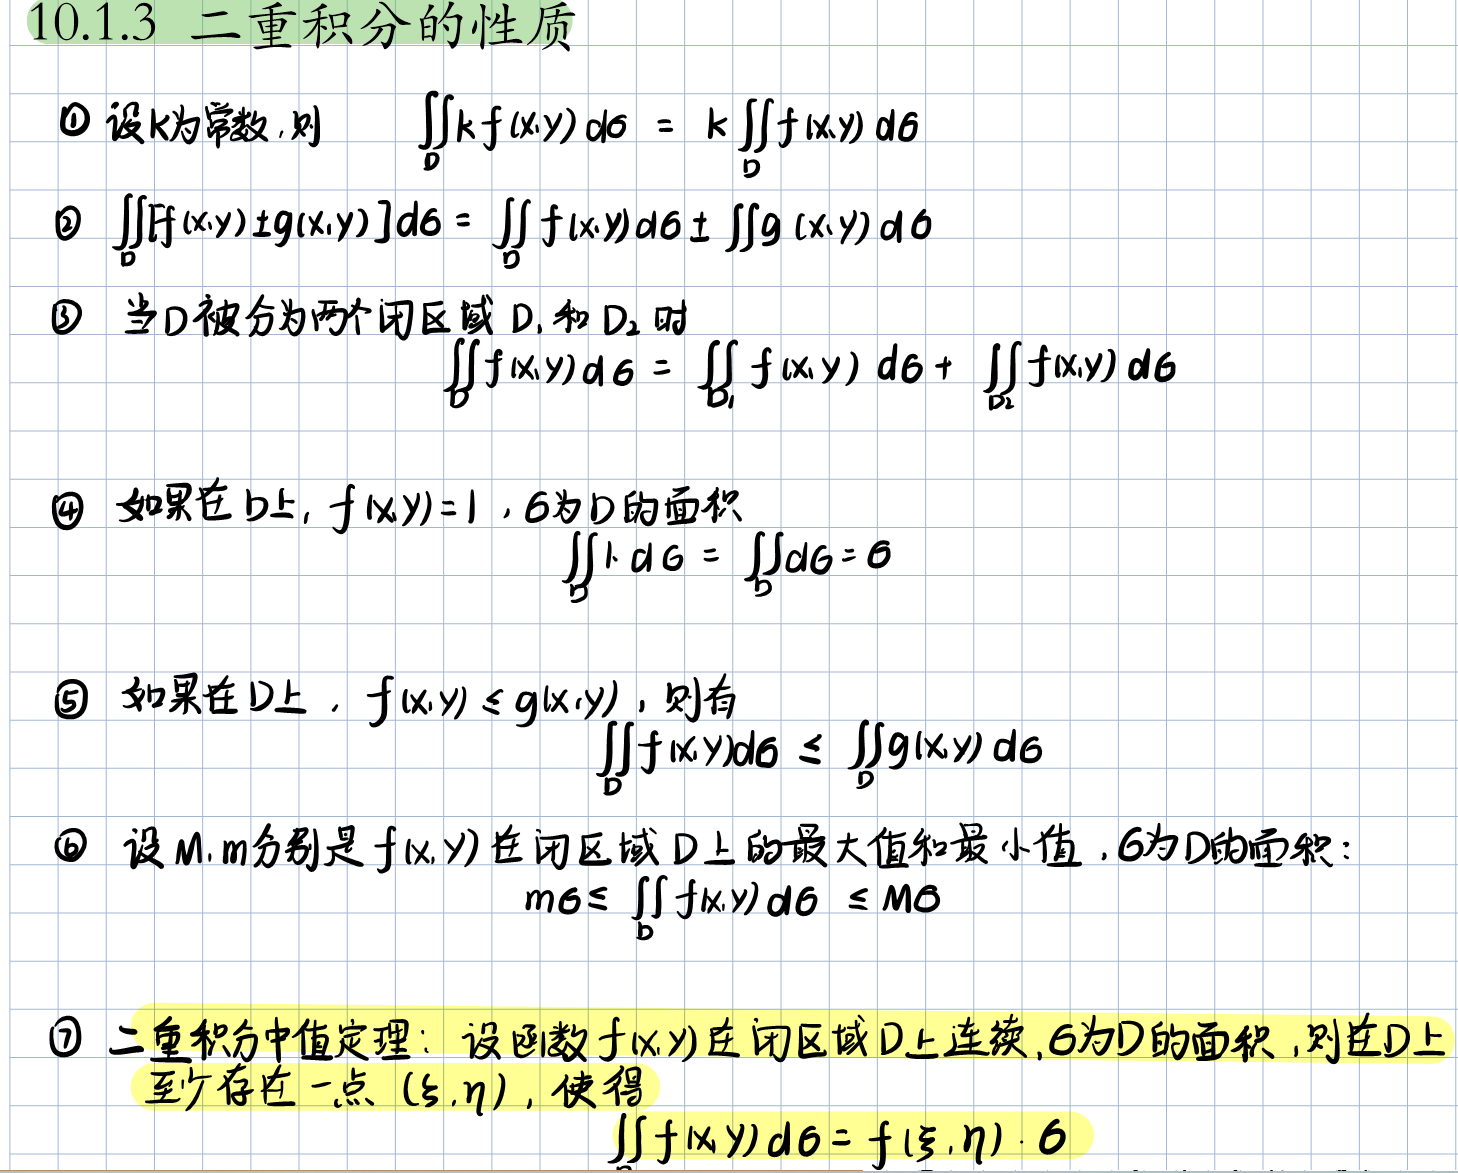 10.1.3 二重积分的性质
① 设k为常数,则 ∬_D k f(x,y) dσ = k ∬_D f(x,y) dσ
② ∬_D [f(x,y) ± g(x,y)] dσ = ∬_D f(x,y) dσ ± ∬ g(x,y) dσ
③ 当D被分为两个闭区域 D₁ 和 D₂ 时
∬_D f(x,y) dσ = ∬_D₁ f(x,y) dσ + ∬_D₂ f(x,y) dσ
④ 如果在D上, f(x,y)=1 , σ为D的面积
∬_D 1·dσ = ∬_D dσ = σ
⑤ 如果在D上 , f(x,y) ≤ g(x,y) , 则有
∬_D f(x,y)dσ ≤ ∬_D g(x,y) dσ
⑥ 设 M,m分别是 f(x,y) 在闭区域 D上的最大值和最小值 , σ为D的面积:
mσ ≤ ∬_D f(x,y) dσ ≤ Mσ
⑦ 二重积分中值定理: 设函数 f(x,y) 在闭区域D上连续,σ为D的面积,则在D上
至少存在一点 (ξ,η) , 使得
∬_D f(x,y) dσ = f(ξ,η)·σ